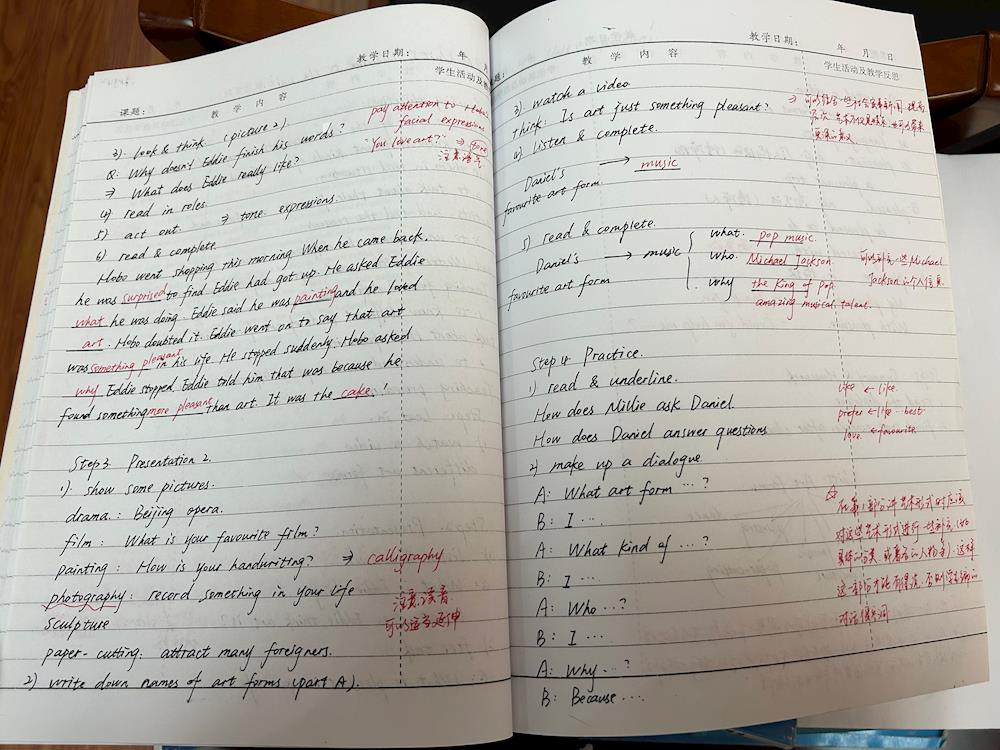 教学日期: 年 月
课题: 教学内容 学生活动及教
3) look & think. (picture 2)
Q: Why doesn't Eddie finish his words?
⇒ What does Eddie really like?
pay attention to Hobo's
facial expressions
"You love art?" ⇒ tone
注意语气
4) read in roles.
5) act out. ⇒ tone. expressions.
6) read & complete.
Hobo went shopping this morning. When he came back,
he was surprised to find Eddie had got up. He asked Eddie
what he was doing. Eddie said he was painting and he loved
art. Hobo doubted it. Eddie went on to say that art
was something pleasant in his life. He stopped suddenly. Hobo asked
why Eddie stopped. Eddie told him that was because he
found something more pleasant than art. It was the cake!
Step 3. Presentation 2.
1). show some pictures.
drama: Beijing opera.
film: What is your favourite film?
painting: How is your handwriting? ⇒ calligraphy
photography: record something in your life
sculpture
注意读音
可以适当延伸
paper-cutting: attract many foreigners.
2) write down names of art forms (part A).
教学日期: 年 月 日
题: 教学内容 学生活动及教学反思
3) watch a video.
think: Is art just something pleasant?
⇒ 可以结合一些社会实事新闻, 提高
4) listen & complete.
Daniel's → music
favourite art form.
5) read & complete.
Daniel's → music { what. pop music.
favourite art form
who. Michael Jackson
why the King of pop.
amazing musical talent.
可以补充一些Michael
Jackson的个人信息
Step 4 Practice.
1) read & underline.
How does Millie ask Daniel.
How does Daniel answer questions
like ← like.
prefer ← like...best
love. ← favourite.
2) make up a dialogue.
A: What art form ...?
B: I ...
A: What kind of ...?
B: I ...
A: Who ...?
B: I ...
A: Why ...?
B: Because ...
☆ 在第1部分讲艺术形式时应该
对这些艺术形式进行一些补充(如
具体的分类, 或著名的人物等) 这样